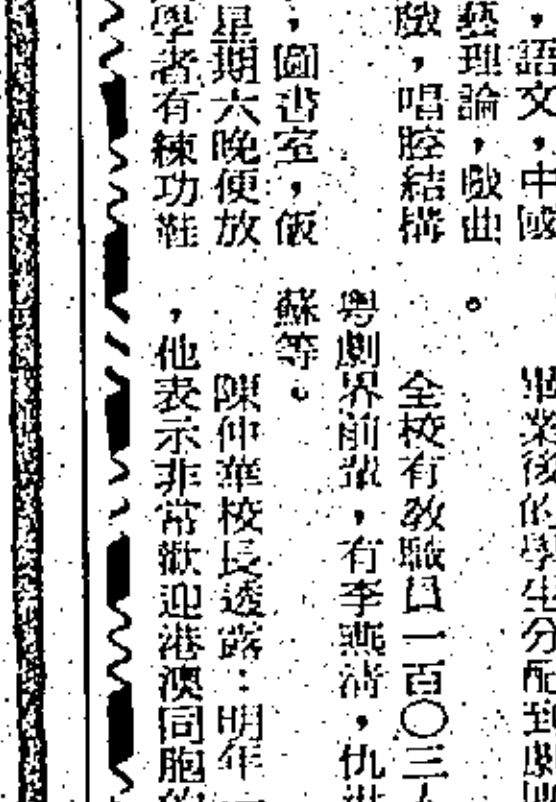 ，語文，中國
藝理論，戲曲
戲，唱腔結構
，圖書室，飯
星期六晚便放
學者有練功鞋
畢業後的學生分配到劇
。
全校有教職員一百〇三
粵劇界前輩，有李燕清，仇
蘇等。
陳仲華校長透露：明年
，他表示非常歡迎港澳同胞